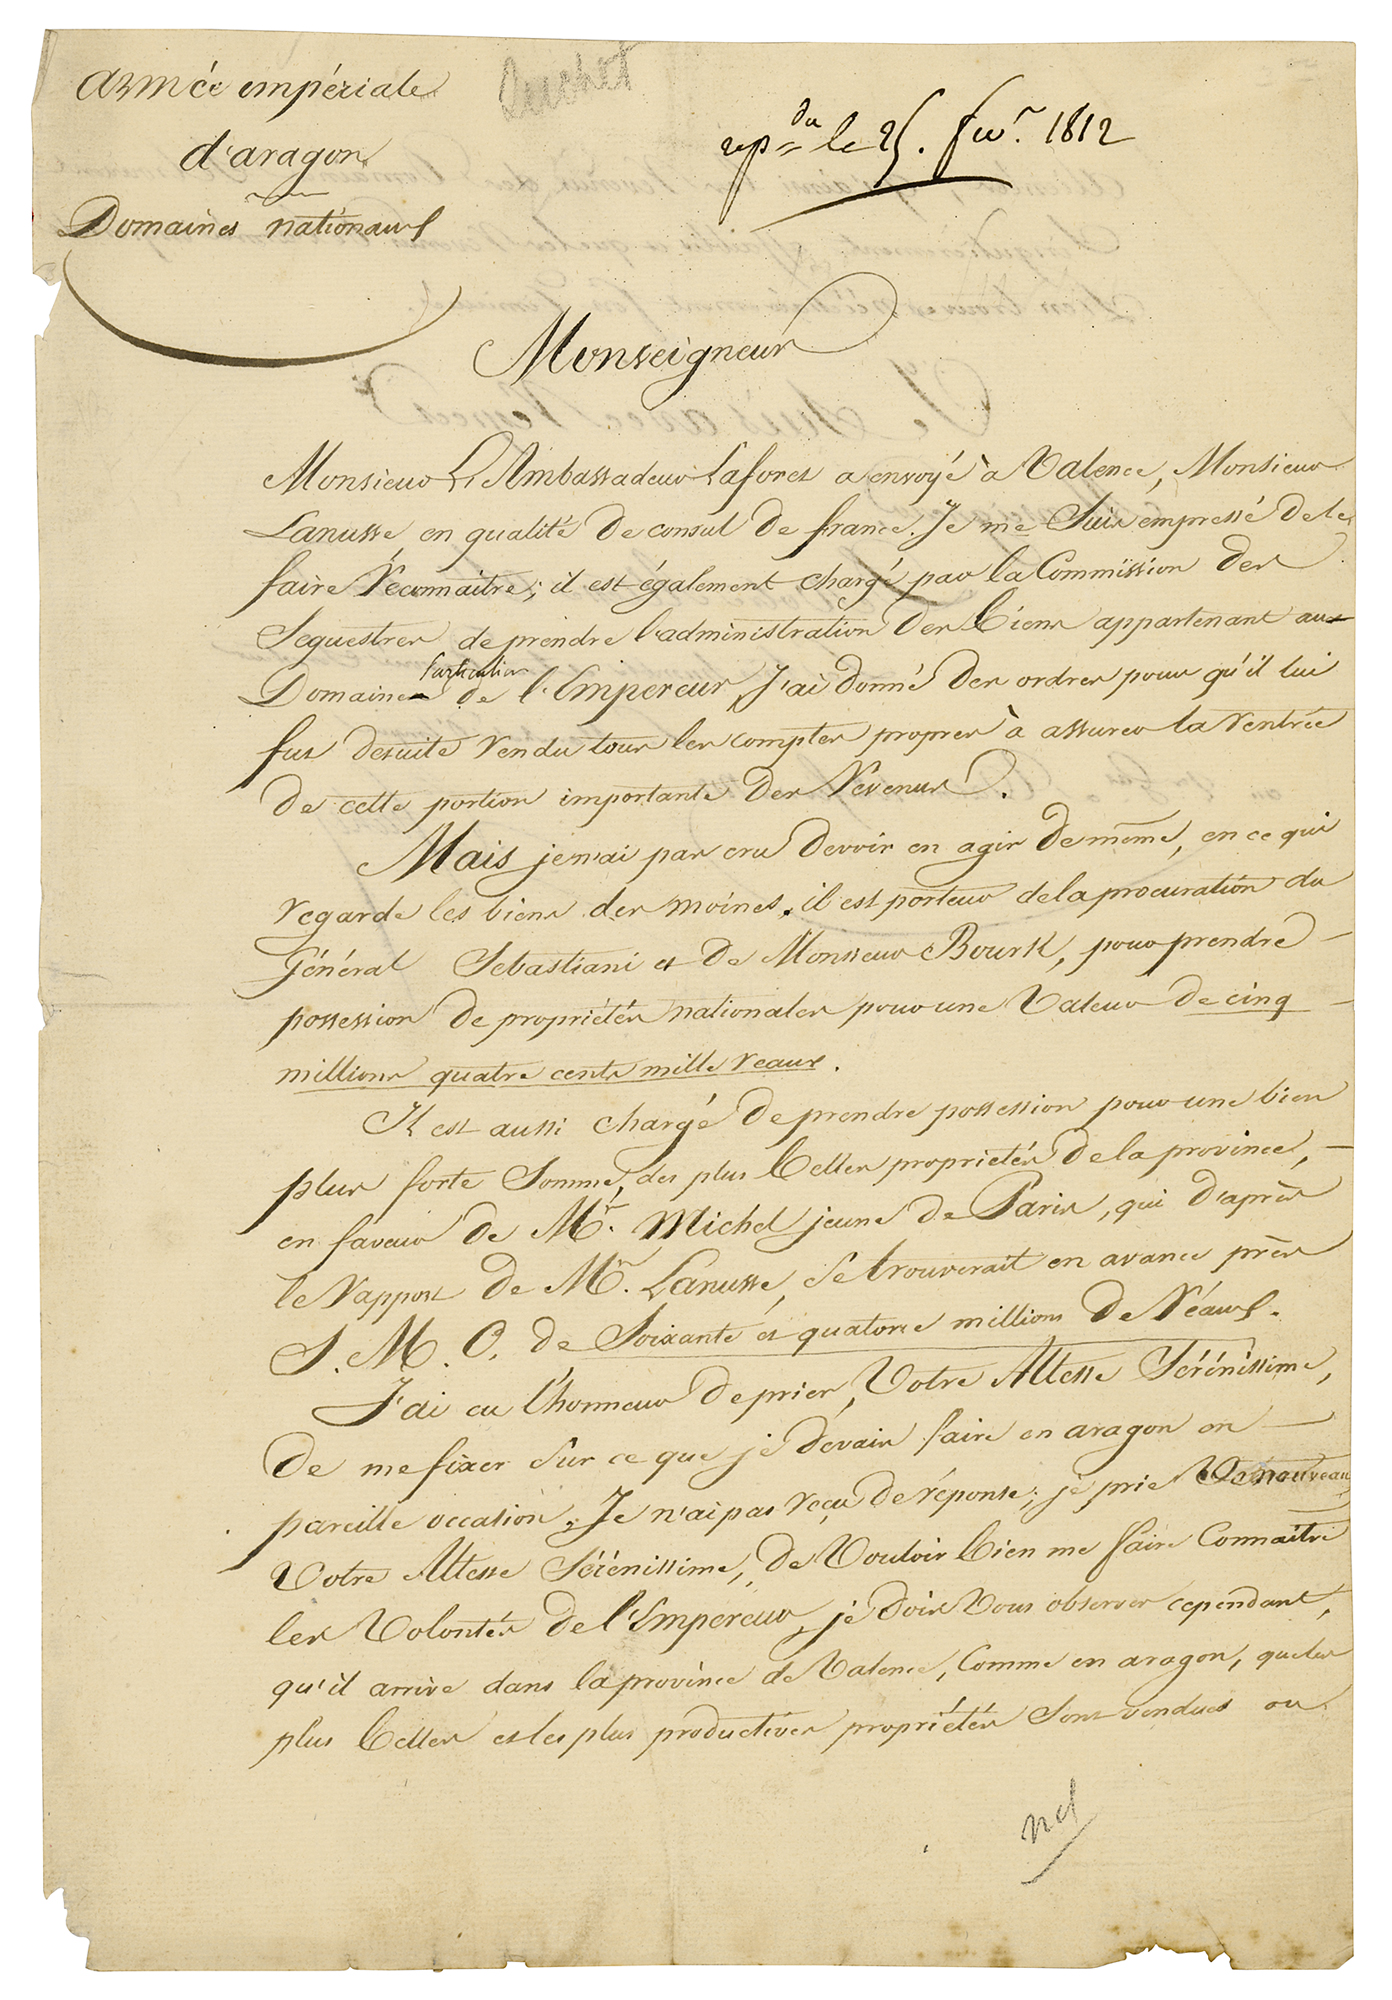 armée empériale
d'aragon
Domaines nationaux
Suchet
rép.due le 25. fev.r 1812
Monseigneur
Monsieur L'Ambassadeur Laforet a envoyé à Valence, Monsieur
Lanusse, en qualité de consul de france. Je me Suis empressé de le
faire Reconnaitre; il est également chargé par la Commission des
Sequestres de prendre l'administration des biens appartenant au
Domaine particulier de l'Empereur, J'ai donné des ordres pour qu'il lui
fut desuite rendu tous les comptes propres à assurer la rentrée
de cette portion importante des Revenus.
Mais je n'ai pas cru devoir en agir de même, en ce qui
regarde les biens des moines, il est porteur de la procuration du
Général Sebastiani et de Monsieur Bourk, pour prendre
possession de propriétés nationales pour une Valeur de cinq
millions quatre cents mille reaux.
Il est aussi chargé de prendre possession pour une bien
plus forte Somme, des plus belles propriétés de la province,
en faveur de Mr. Michel jeune de Paris, qui d'après
le rapport de Mr. Lanusse, Se trouverait en avance près
S. M. C. de Soixante et quatorze millions de Réaux.
J'ai eu l'honneur de prier, Votre Altesse Sérénissime,
de me fixer Sur ce que je devais faire en aragon en
pareille occasion. Je n'ai pas reçu de réponse; je prie De nouveau
Votre Altesse Sérénissime, de Vouloir bien me faire Connaître
les Volontés de l'Empereur, je dois Vous observer cependant,
qu'il arrive dans la province de Valence, Comme en aragon, que les
plus belles et les plus productives propriétés Sont vendues ou